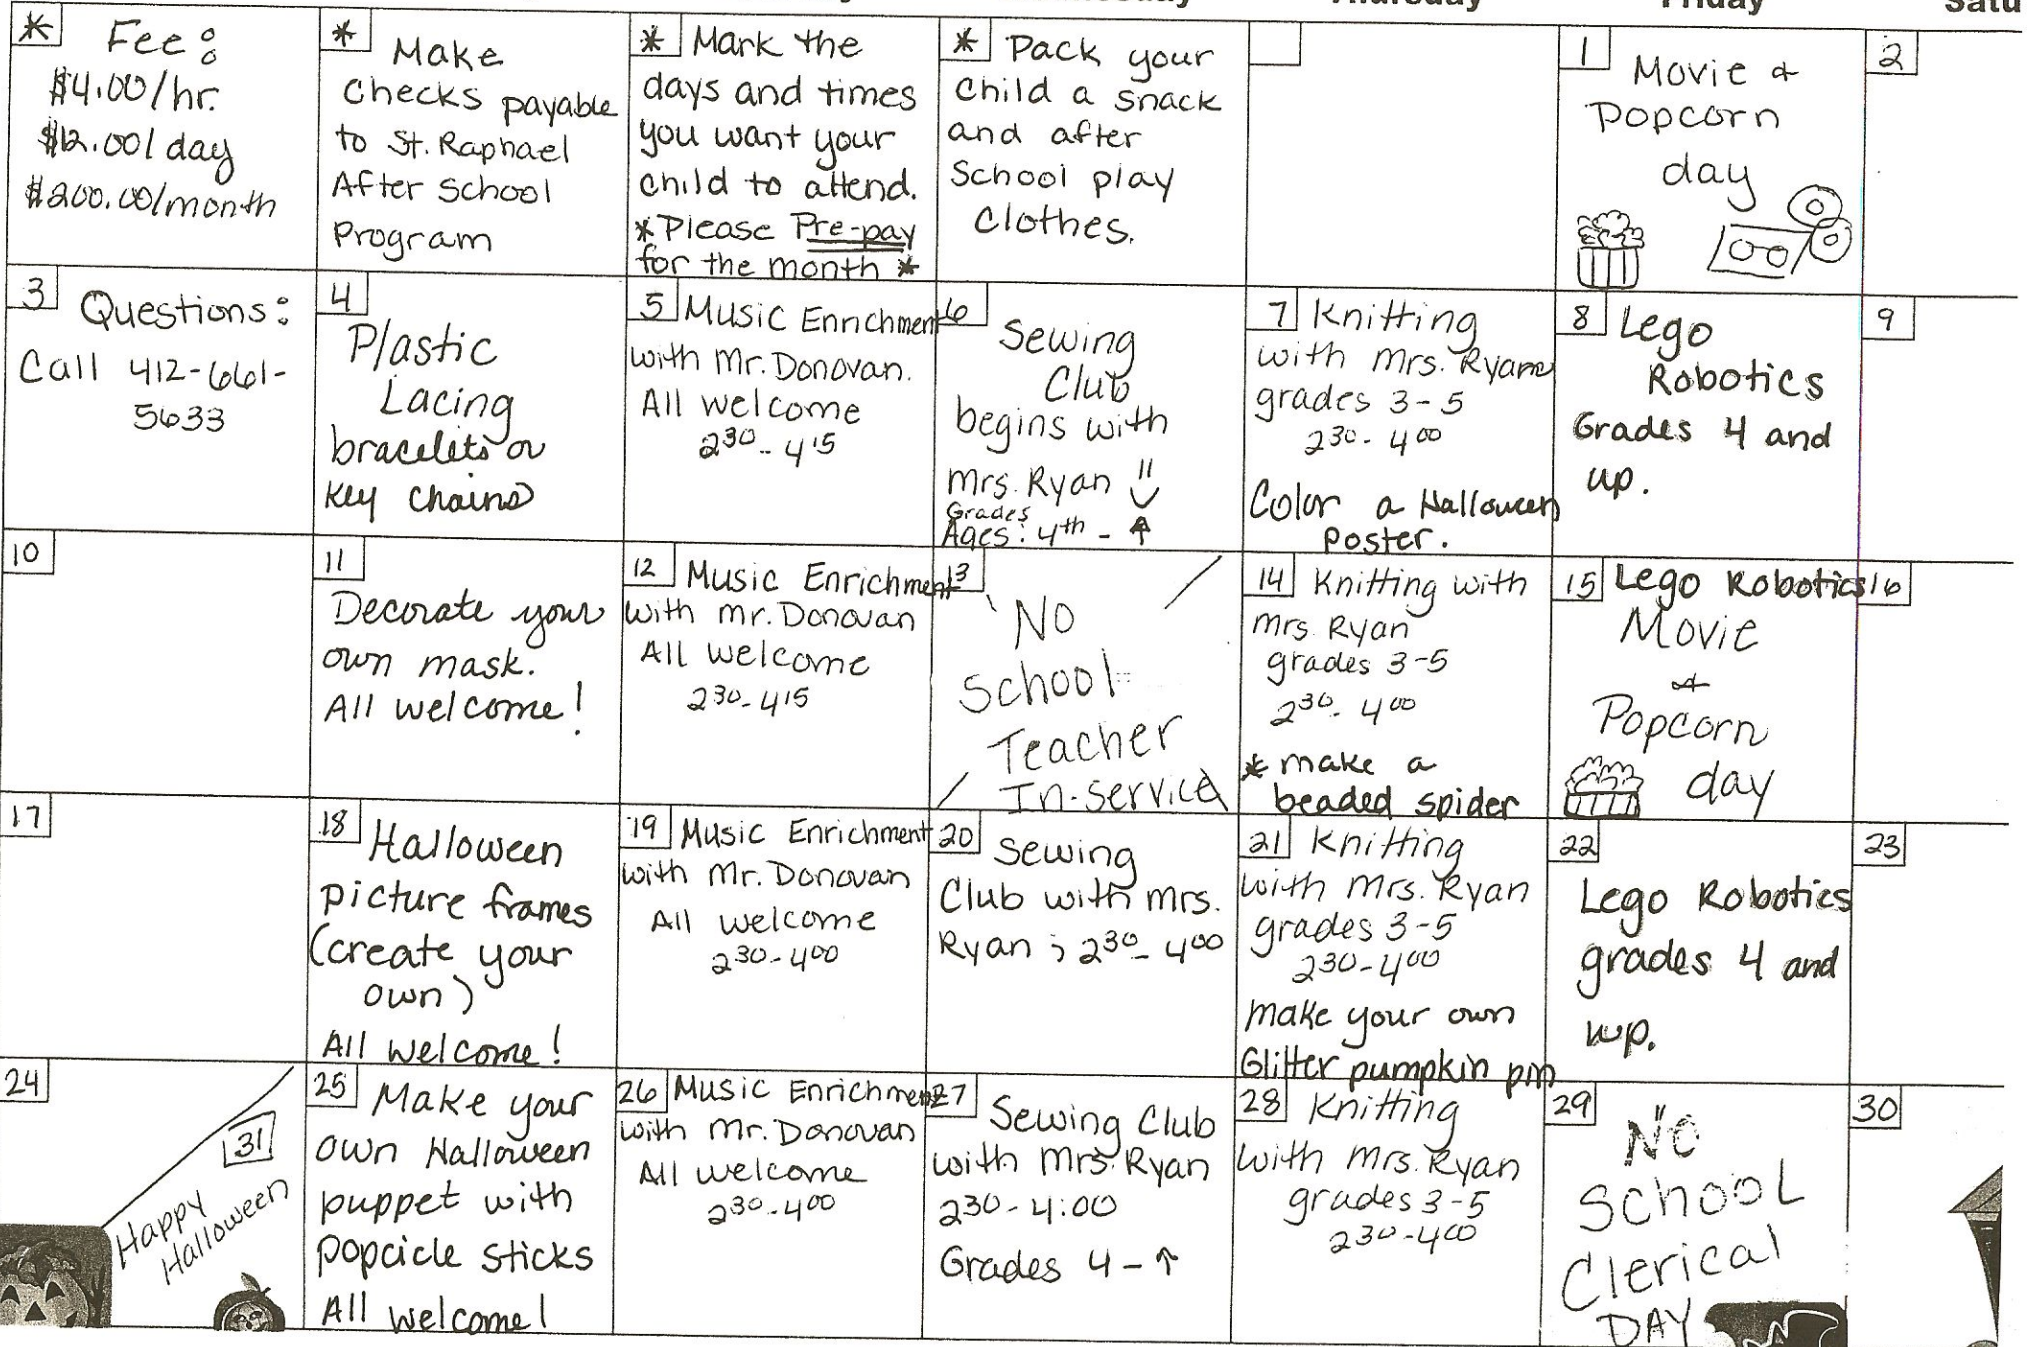 Thursday
Friday
*
Fee:
$4.00/hr.
$12.00/day
$200.00/month
*
Make
checks payable
to St. Raphael
After School
Program
*
Mark the
days and times
you want your
child to attend.
*Please Pre-pay
for the month *
*
Pack your
child a snack
and after
School play
clothes.
1
Movie &
Popcorn
day
2
3
Questions:
Call 412-661-
5633
4
Plastic
Lacing
bracelets or
key chains
5
Music Enrichment
with Mr. Donovan.
All welcome
2 30 - 4 15
6
Sewing
Club
begins with
Mrs. Ryan
Grades
Ages: 4th - ↑
7
Knitting
with Mrs. Ryan
grades 3-5
2 30 - 4 00
Color a Halloween
Poster.
8
Lego
Robotics
Grades 4 and
up.
9
10
11
Decorate your
own mask.
All welcome!
12
Music Enrichment
with Mr. Donovan
All welcome
2 30 - 4 15
13
No
School
Teacher
In-service
14
Knitting with
Mrs. Ryan
grades 3-5
2 30 - 4 00
* make a
beaded spider
15
Lego Robotics
Movie
&
Popcorn
day
16
17
18
Halloween
picture frames
(create your
own)
All welcome!
19
Music Enrichment
with Mr. Donovan
All welcome
2 30 - 4 00
20
Sewing
Club with Mrs.
Ryan ; 2 30 - 4 00
21
Knitting
with Mrs. Ryan
grades 3-5
2 30 - 4 00
Make your own
Glitter pumpkin pin
22
Lego Robotics
grades 4 and
up.
23
24
31
Happy
Halloween
25
Make your
own Halloween
puppet with
Popcicle sticks
All welcome!
26
Music Enrichment
with Mr. Donovan
All welcome
2 30 - 4 00
27
Sewing Club
with Mrs. Ryan
2 30 - 4:00
Grades 4 - ↑
28
Knitting
with Mrs. Ryan
grades 3-5
2 30 - 4 00
29
No
School
Clerical
DAY
30